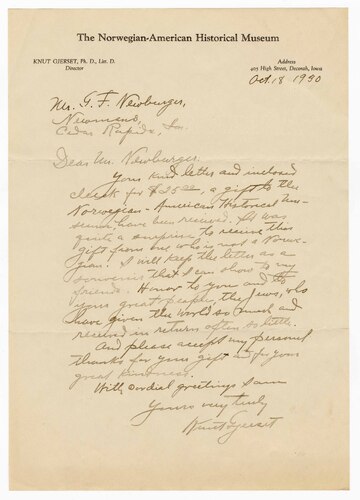 The Norwegian-American Historical Museum
KNUT GJERSET, Ph. D., Litt. D.
Director
Address
405 High Street, Decorah, Iowa
Oct. 18 1930
Mr. G. F. Newburger,
Newmans,
Cedar Rapids, Ia.
Dear Mr. Newburger:
Your kind letter and inclosed
check for $25.00, a gift to the
Norwegian-American Historical Mu-
seum have been received. It was
quite a surprise to receive this
gift from one who is not a Norwe-
gian. I will keep the letter as a
souvenir that I can show to my
friends. Honor to you and to
your great people, the Jews, who
have given the world so much and
received in return often so little.
And please accept my personal
thanks for your gift and for your
great kindness.
With cordial greetings I am
Yours very truly
Knut Gjerset